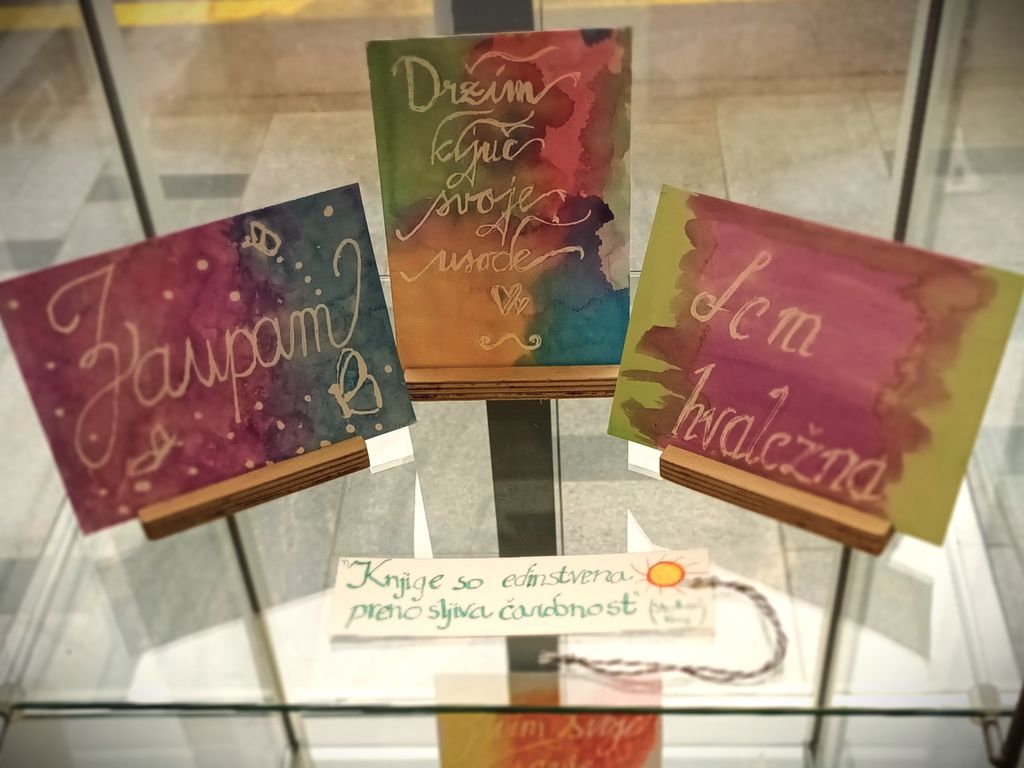 Zaupam
Držim
ključ
svoje
usode
Sem
hvaležna
"Knjige so edinstvena
prenosljiva čarobnost"
(Stephen
King)
svoje